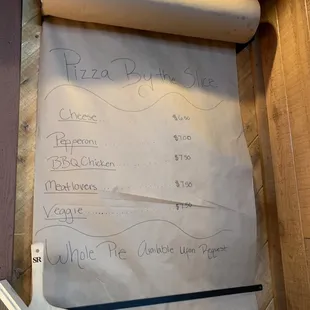 Pizza By the Slice
Cheese $6.50
Pepperoni $7.00
BBQ Chicken $7.50
Meatlovers $7.50
Veggie $7.50
Whole Pie Available Upon Request
SR